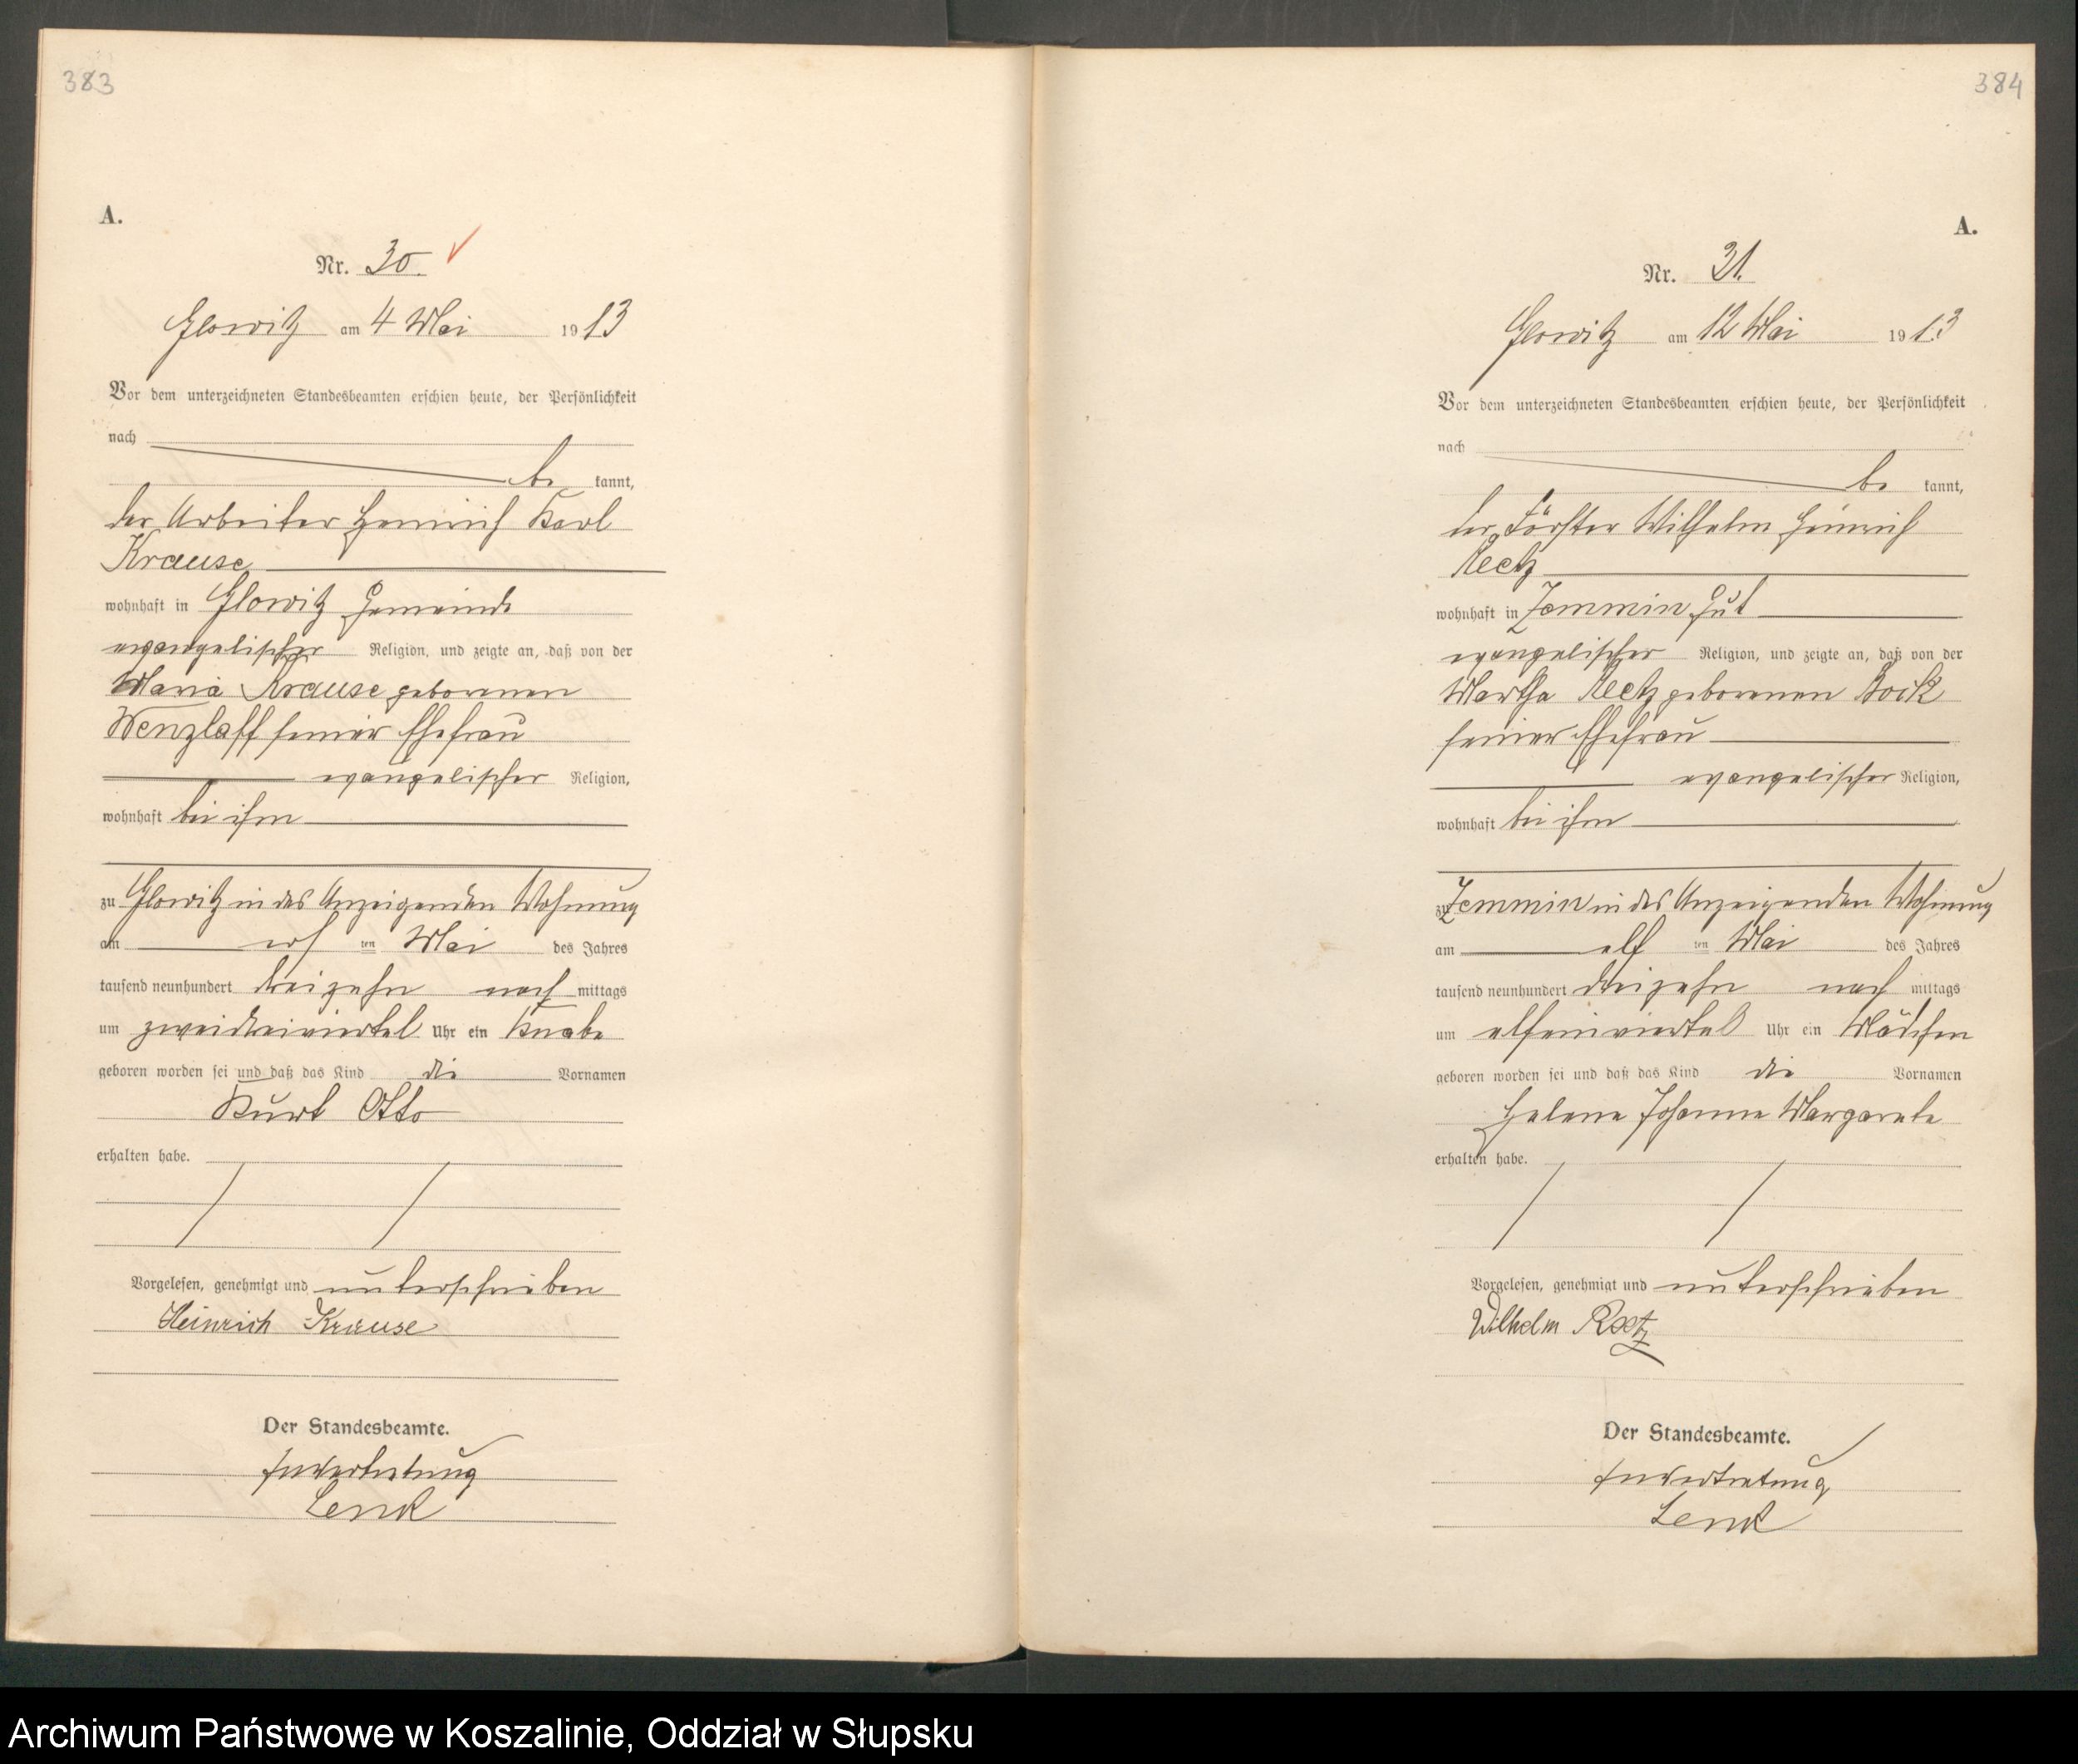 383
A.
Nr. 30.
Glowitz am 4 Mai 1913
Vor dem unterzeichneten Standesbeamten erschien heute, der Persönlichkeit
nach
be kannt,
der Arbeiter Heinrich Karl
Krause
wohnhaft in Glowitz Gemeinde
evangelischer Religion, und zeigte an, daß von der
Maria Krause geborenen
Wenzlaff seiner Ehefrau
evangelischer Religion,
wohnhaft bei ihm
zu Glowitz in des Anzeigenden Wohnung
am ten Mai des Jahres
tausend neunhundert dreizehn nach mittags
um zweidreiviertel Uhr ein Knabe
geboren worden sei und daß das Kind die Vornamen
Kurt Otto
erhalten habe.
Vorgelesen, genehmigt und unterschrieben
Heinrich Krause
Der Standesbeamte.
In Vertretung
Lenk
384
A.
Nr. 31.
Glowitz am 12 Mai 1913
Vor dem unterzeichneten Standesbeamten erschien heute, der Persönlichkeit
nach
be kannt,
der Förster Wilhelm Heinrich
Reetz
wohnhaft in Zemmin Gut
evangelischer Religion, und zeigte an, daß von der
Martha Reetz geborenen Bock
seiner Ehefrau
evangelischer Religion,
wohnhaft bei ihm
zu Zemmin in des Anzeigenden Wohnung
am elf ten Mai des Jahres
tausend neunhundert dreizehn nach mittags
um elfeinviertel Uhr ein Mädchen
geboren worden sei und daß das Kind die Vornamen
Helene Johanna Margarete
erhalten habe.
Vorgelesen, genehmigt und unterschrieben
Wilhelm Reetz
Der Standesbeamte.
In Vertretung
Lenk
Archiwum Państwowe w Koszalinie, Oddział w Słupsku